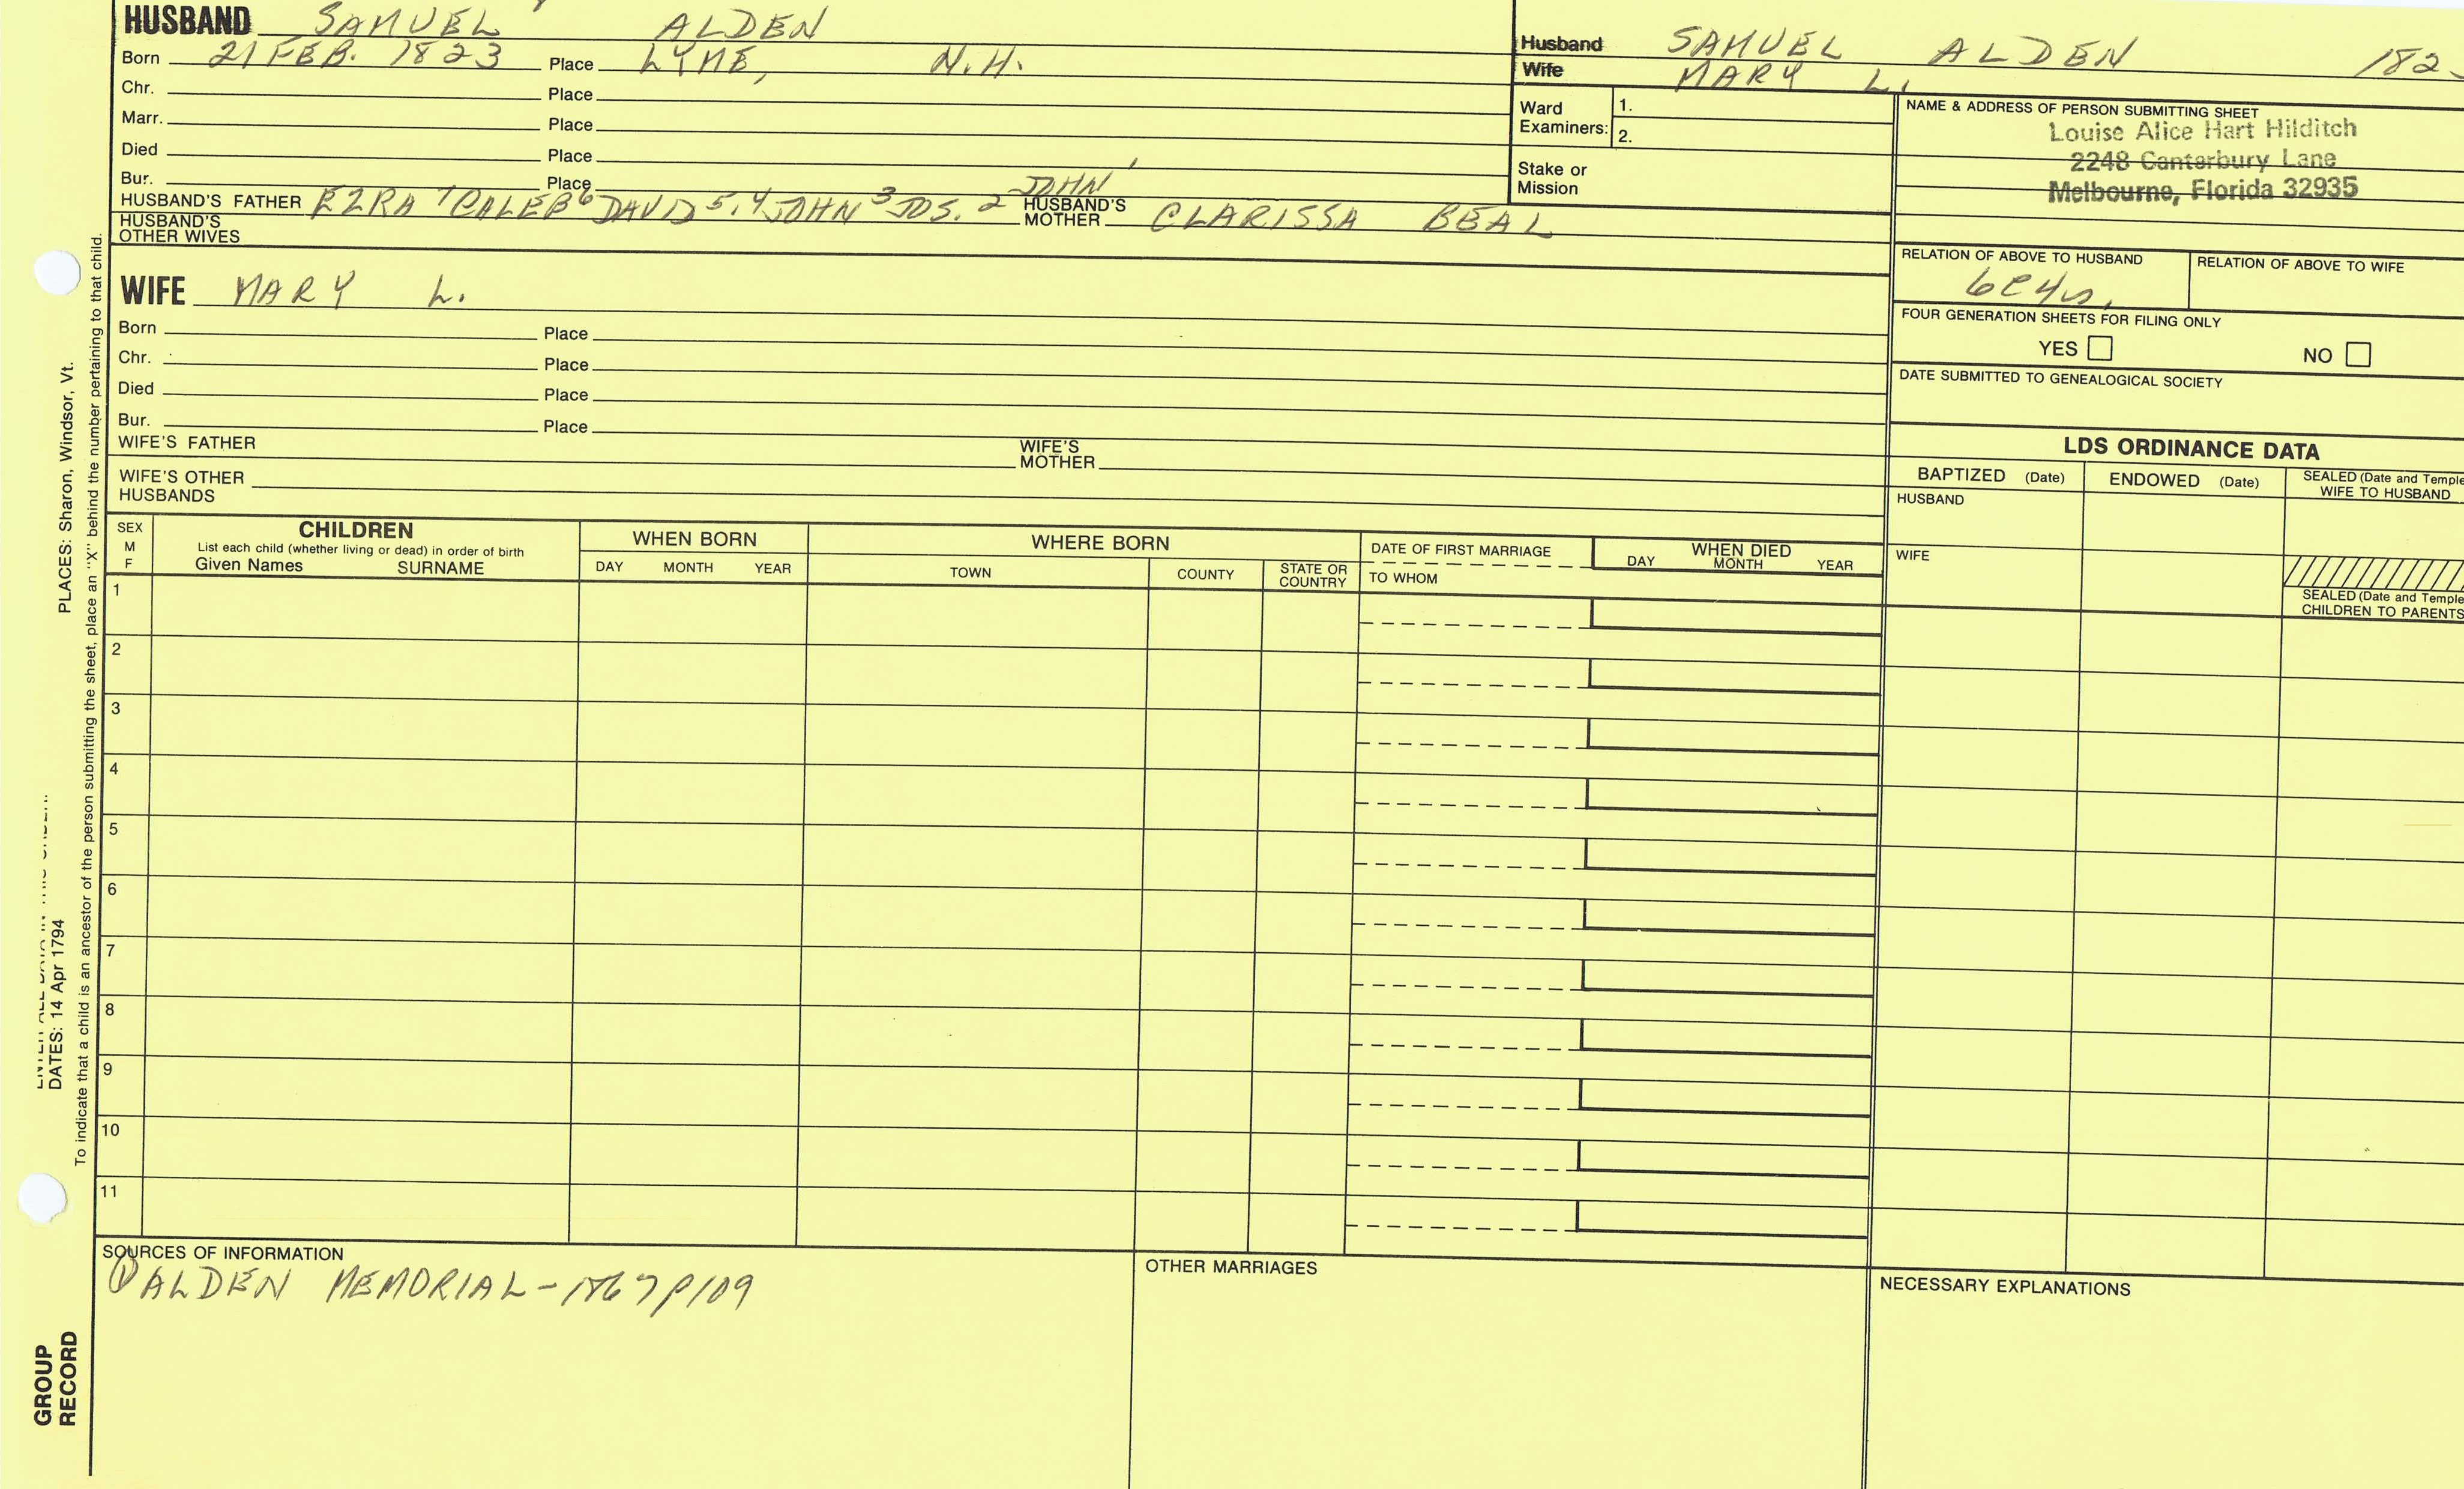 HUSBAND SAMUEL ALDEN
Born 21 FEB. 1823 Place LYME, N.H.
Chr. Place
Marr. Place
Died Place
Bur. Place
HUSBAND'S FATHER EZRA 7 CALEB 6 DAVID 5,4 JOHN 3 JOS. 2 JOHN 1 HUSBAND'S MOTHER CLARISSA BEAL
HUSBAND'S OTHER WIVES
WIFE MARY L.
Born Place
Chr. Place
Died Place
Bur. Place
WIFE'S FATHER WIFE'S MOTHER
WIFE'S OTHER HUSBANDS
Husband SAMUEL ALDEN 182
Wife MARY L.
Ward Examiners: 1.
2.
Stake or Mission
NAME & ADDRESS OF PERSON SUBMITTING SHEET
Louise Alice Hart Hilditch
2248 Canterbury Lane
Melbourne, Florida 32935
RELATION OF ABOVE TO HUSBAND RELATION OF ABOVE TO WIFE
FOUR GENERATION SHEETS FOR FILING ONLY
YES NO
DATE SUBMITTED TO GENEALOGICAL SOCIETY
LDS ORDINANCE DATA
BAPTIZED (Date) ENDOWED (Date) SEALED (Date and Temple
WIFE TO HUSBAND
HUSBAND
WIFE
SEALED (Date and Temple
CHILDREN TO PARENTS
SEX
M
F
CHILDREN
List each child (whether living or dead) in order of birth
Given Names SURNAME
WHEN BORN
DAY MONTH YEAR
WHERE BORN
TOWN COUNTY STATE OR COUNTRY
DATE OF FIRST MARRIAGE
TO WHOM
WHEN DIED
DAY MONTH YEAR
1
2
3
4
5
6
7
8
9
10
11
SOURCES OF INFORMATION
① ALDEN MEMORIAL - 1867 P109
OTHER MARRIAGES
NECESSARY EXPLANATIONS
PLACES: Sharon, Windsor, Vt.
DATES: 14 Apr 1794
To indicate that a child is an ancestor of the person submitting the sheet, place an "X" behind the number pertaining to that child.
GROUP
RECORD